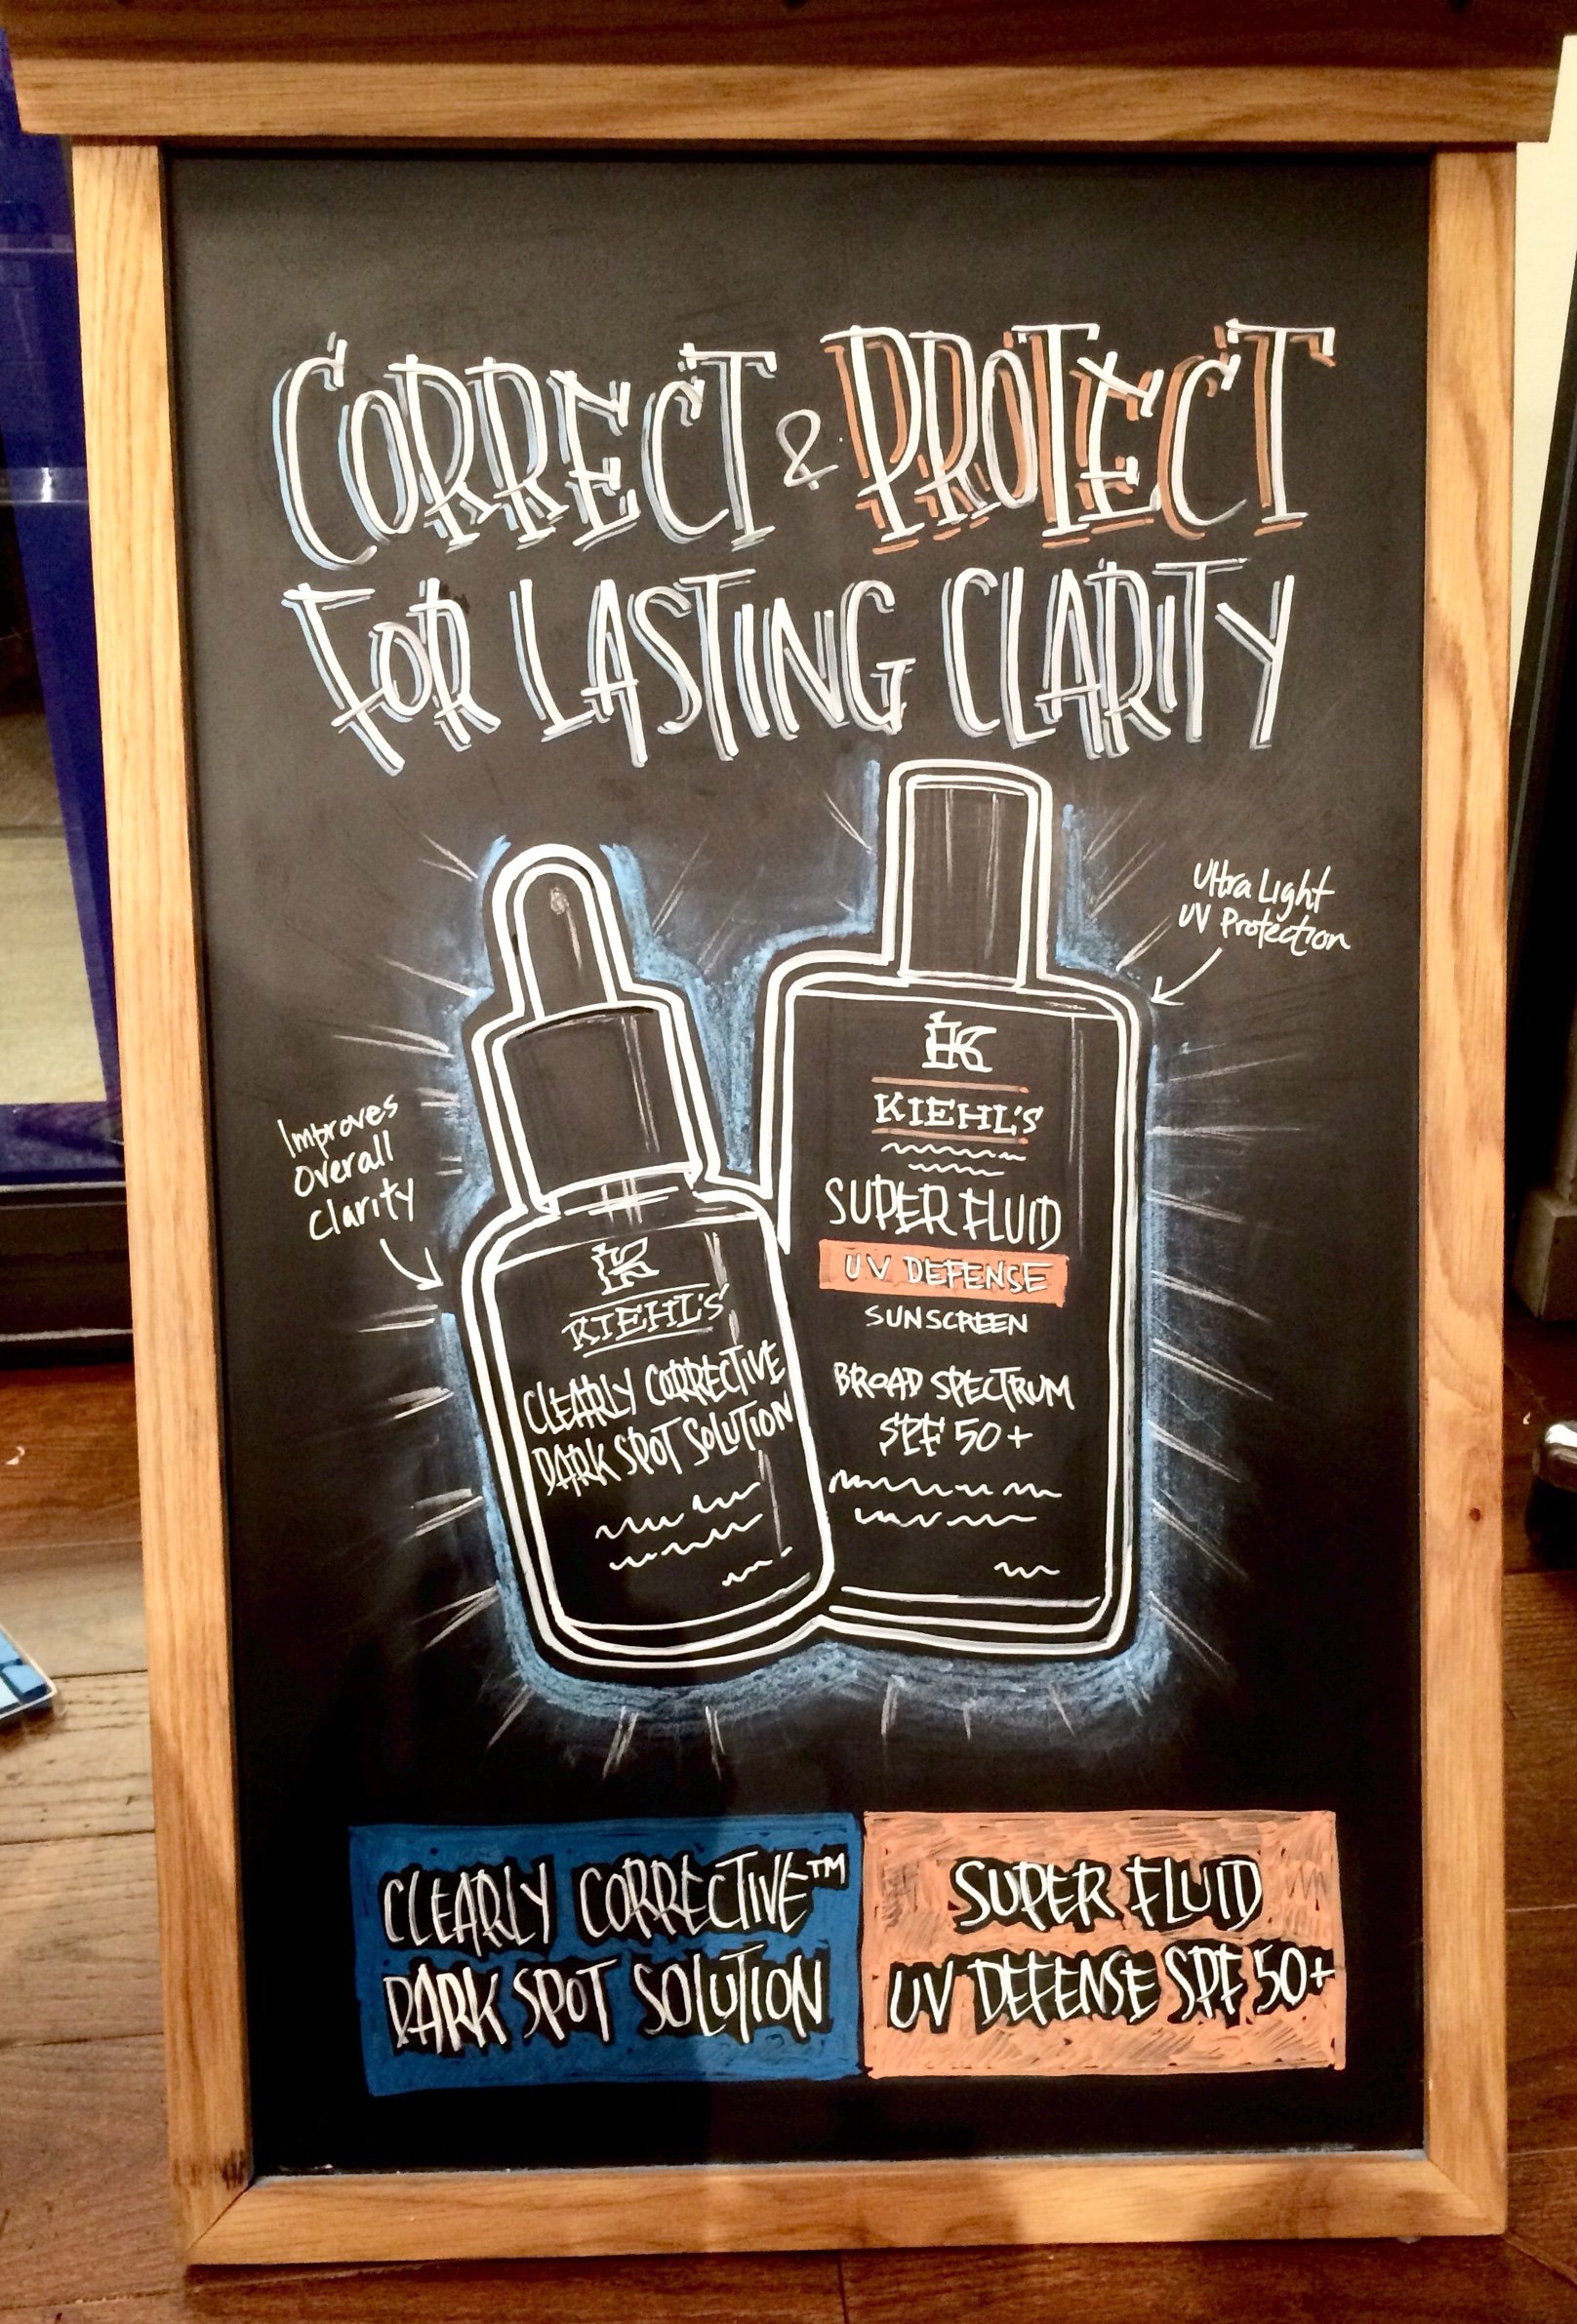 CORRECT & PROTECT
FOR LASTING CLARITY
Ultra Light
UV Protection
Improves
Overall
Clarity
K
KIEHL'S
CLEARLY CORRECTIVE
DARK SPOT SOLUTION
K
KIEHL'S
SUPER FLUID
UV DEFENSE
SUNSCREEN
BROAD SPECTRUM
SPF 50+
CLEARLY CORRECTIVE™
DARK SPOT SOLUTION
SUPER FLUID
UV DEFENSE SPF 50+